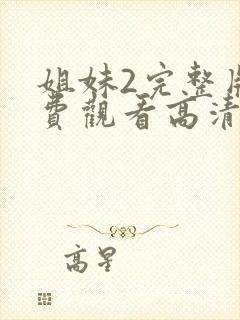 姐妹2完整
費觀看高清
高星